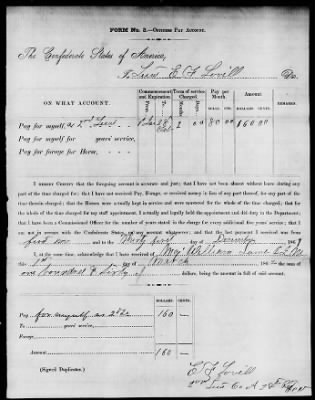 FORM No. 3.—OFFICERS PAY ACCOUNT.
The Confederate States of America,
To Lieut E F Lovill Dr.
ON WHAT ACCOUNT.
Commencement and Expiration
Term of service Charged.
Pay per Month
Amount
REMARKS.
From To Months Days DOLLARS CTS. DOLLARS CENTS
Pay for myself, as 2nd Lieut 80 00 160 00
Pay for myself, years' service,
Pay for forage for Horse,
I HEREBY CERTIFY that the foregoing account is accurate and just; that I have not been absent without leave during any part of the time charged for; that I have not received Pay, Forage, or received money in lieu of any part thereof, for any part of the time therein charged; that the Horses were actually kept in service and were mustered for the whole of the time charged; that for the whole of the time charged for my staff appointment, I actually and legally held the appointment and did duty in the Department; that I have been a Commissioned Officer for the number of years stated in the charge for every additional five years' service; that I am not in arrears with the Confederate States, on any account whatsoever; and that the last payment I received was from
and thirty first day of December 186
I, at the same time, acknowledge that I have received of Maj William
this day of March 186 the sum of
one hundred & Sixty dollars, being the amount in full of said account.
DOLLARS CENTS
Pay, for myself as 2d Lt 160 —
To years service,
Forage,
Amount 160 —
(Signed Duplicates.)
E F Lovill
2nd Lieut Co A